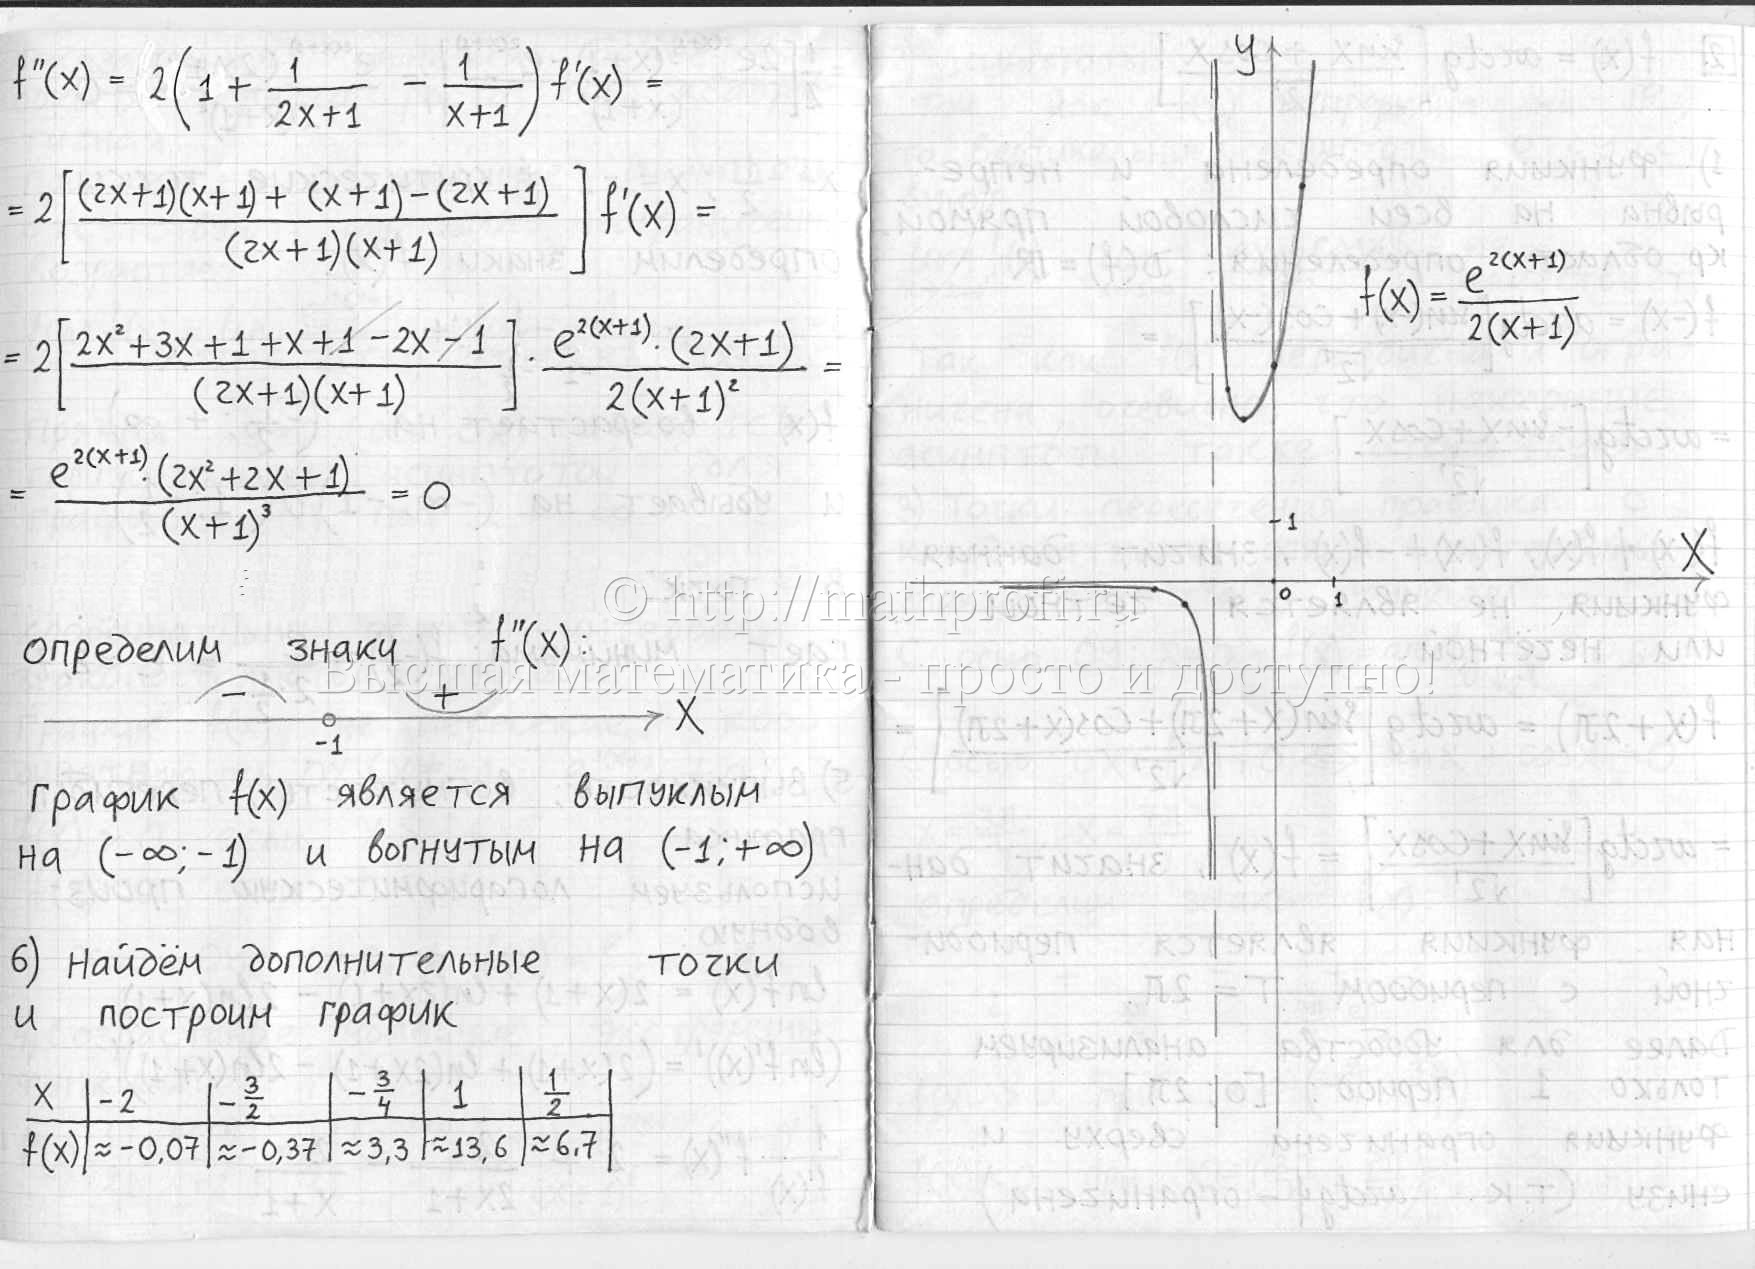 f''(x) = 2(1 + 1/(2x+1) - 1/(x+1)) f'(x) =
= 2[((2x+1)(x+1) + (x+1) - (2x+1))/((2x+1)(x+1))] f'(x) =
= 2[(2x²+3x+1+x+1-2x-1)/((2x+1)(x+1))] · (e^{2(x+1)}·(2x+1))/(2(x+1)²) =
= (e^{2(x+1)}·(2x²+2x+1))/((x+1)³) = 0
⋮
определим знаки f''(x):
− +
-1 X
График f(x) является выпуклым
на (-∞;-1) и вогнутым на (-1;+∞)
6) Найдём дополнительные точки
и построим график
x | -2 | -3/2 | -3/4 | 1 | 1/2
f(x) | ≈-0,07 | ≈-0,37 | ≈3,3 | ≈13,6 | ≈6,7
y
f(x) = e^{2(x+1)}/(2(x+1))
1
X
0 1
© http://mathprofi.ru
Высшая математика - просто и доступно!